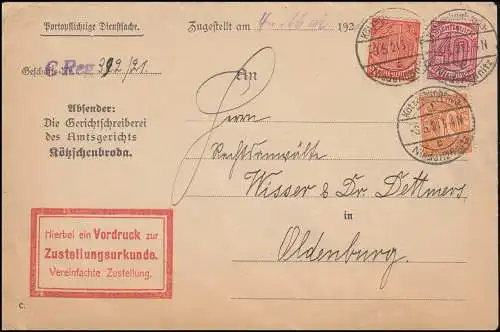 Portopflichtige Dienstsache.
Zugestellt am 192
Geschäfts-Nr. C Reg 392/21.
An
Absender:
Die Gerichtschreiberei
des Amtsgerichts
Kötzschenbroda.
Herrn
Rechtsanwälte
Wisser & Dr. Dettmers
in
Oldenburg.
Hierbei ein Vordruck zur
Zustellungsurkunde.
Vereinfachte Zustellung.
C.